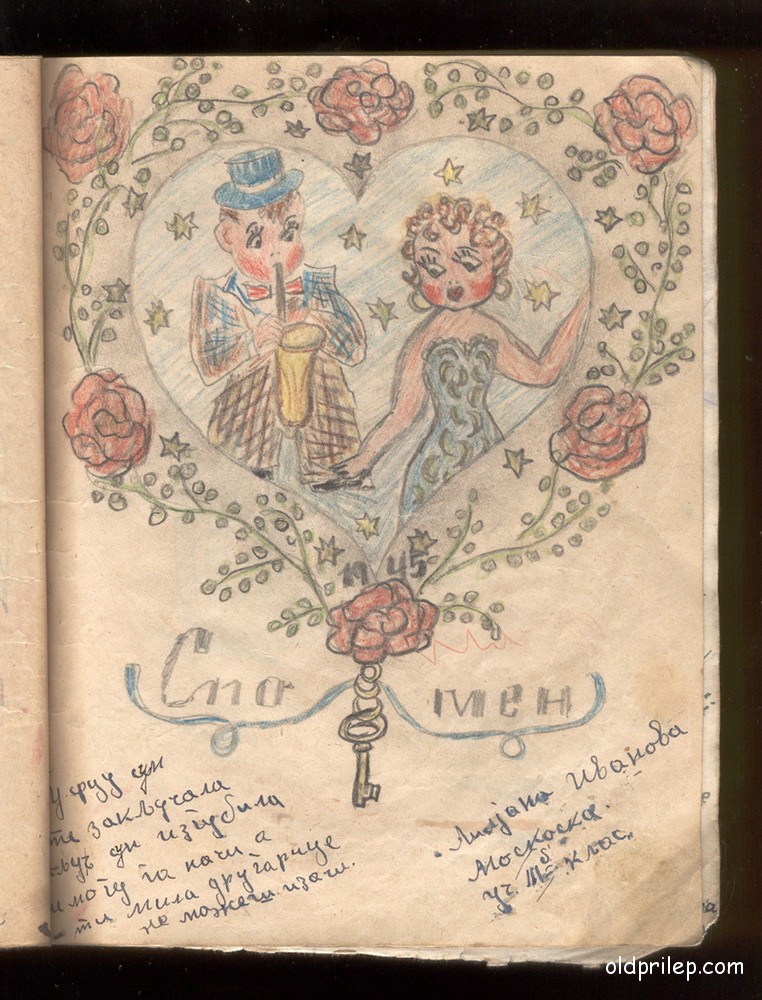 1945
Спомен
У срце ди
те заклучала
кључ ди изгубила
могу га наћи а
ти мила другарице
не можеш изаћи.
Лилјана Иванова
Москоска
уч. III 5 клас.
oldprilep.com